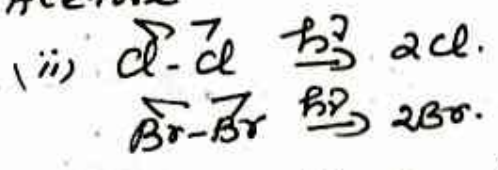 (ii) Cl-Cl hν→ 2Cl.
Br-Br hν→ 2Br.